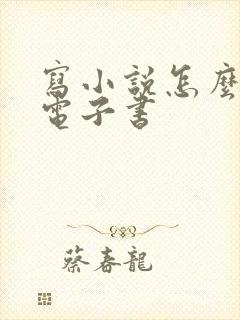 寫小說怎麼
電子書
蔡春龍